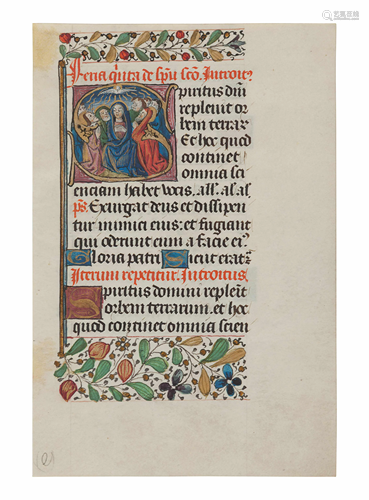 Feria quinta de spū scō. Introit⁹
piritus dm̄
repleuit or
bem terrar̄
Et hoc quod
continet
omnia sci
enciam habet vocis. all̄a. al̄. al̄.
p̄s. Exurgat deus et dissipen
tur inimici eius: et fugiant
qui oderunt eum a facie ei⁹
Gloria patri Sicut erat
Iterum repetitur. Introitus
Spiritus domini repleūt
orbem terrarum. et hoc
quod continet omnia scien